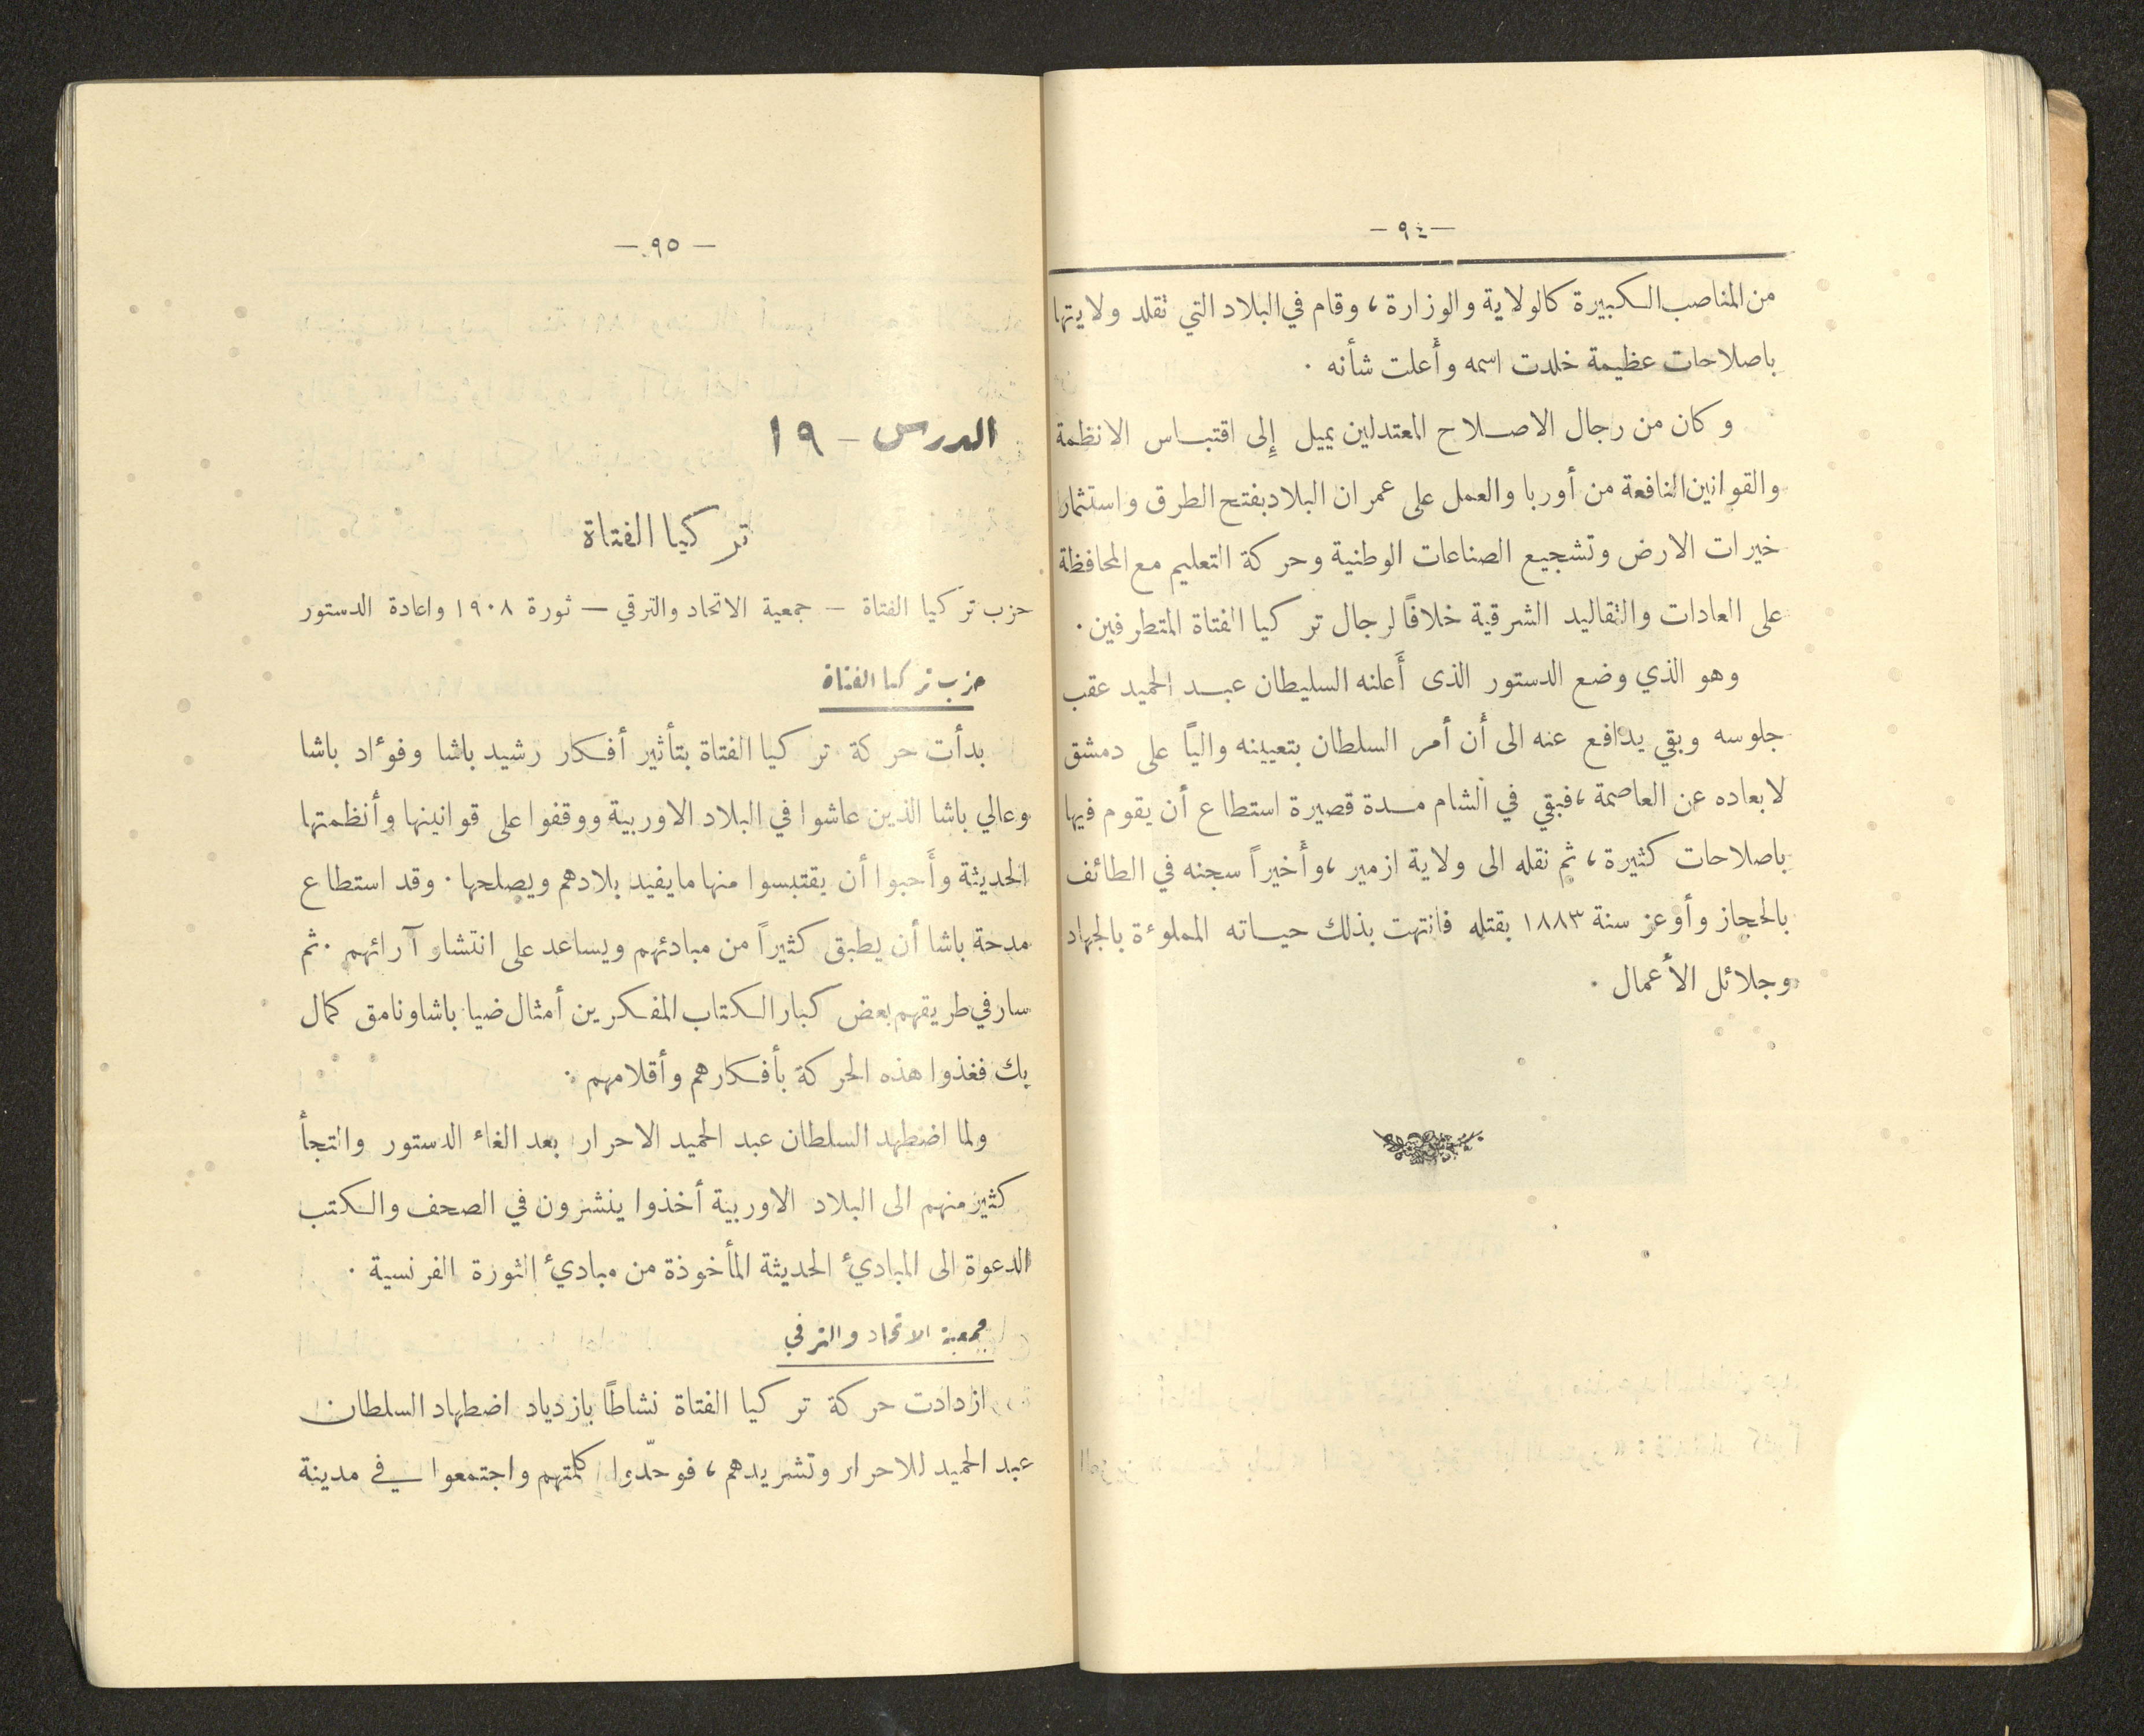 — ٩٤ —
من المناصب الكبيرة كالولاية والوزارة ، وقام في البلاد التي تقلد ولايتها
باصلاحات عظيمة خلدت اسمه وأعلت شأنه .
وكان من رجال الاصلاح المعتدلين يميل إلى اقتباس الانظمة
والقوانين النافعة من أوربا والعمل على عمران البلاد بفتح الطرق واستثمار
خيرات الارض وتشجيع الصناعات الوطنية وحركة التعليم مع المحافظة
على العادات والتقاليد الشرقية خلافاً لرجال تركيا الفتاة المتطرفين .
وهو الذي وضع الدستور الذى أعلنه السليطان عبد الحميد عقب
جلوسه وبقي يدافع عنه الى أن أمر السلطان بتعيينه والياً على دمشق
لابعاده عن العاصمة ، فبقي في الشام مدة قصيرة استطاع أن يقوم فيها
باصلاحات كثيرة ، ثم نقله الى ولاية ازمير ، وأخيراً سجنه في الطائف
بالحجاز وأوعز سنة ١٨٨٣ بقتله فانتهت بذلك حياته المملوءة بالجهاد
وجلائل الأعمال .
— ٩٥ —
الدرس - ١٩
تركيا الفتاة
حزب تركيا الفتاة — جمعية الاتحاد والترقي — ثورة ١٩٠٨ واعادة الدستور
حزب تركيا الفتاة
بدأت حركة تركيا الفتاة بتأثير أفكار رشيد باشا وفؤاد باشا
وعالي باشا الذين عاشوا في البلاد الاوربية ووقفوا على قوانينها وأنظمتها
الحديثة وأحبوا أن يقتبسوا منها ما يفيد بلادهم ويصلحها . وقد استطاع
مدحة باشا أن يطبق كثيراً من مبادئهم ويساعد على انتشار آرائهم . ثم
سار في طريقهم بعض كبار الكتاب المفكرين أمثال ضيا باشا ونامق كمال
بك فغذوا هذه الحركة بأفكارهم وأقلامهم .
ولما اضطهد السلطان عبد الحميد الاحرار بعد الغاء الدستور والتجأ
كثير منهم الى البلاد الاوربية أخذوا ينشرون في الصحف والكتب
الدعوة الى المبادئ الحديثة المأخوذة من مبادئ الثورة الفرنسية .
جمعية الاتحاد والترقي
ازدادت حركة تركيا الفتاة نشاطاً بازدياد اضطهاد السلطان
عبد الحميد للاحرار وتشريدهم ، فوحدّوا كلمتهم واجتمعوا في مدينة